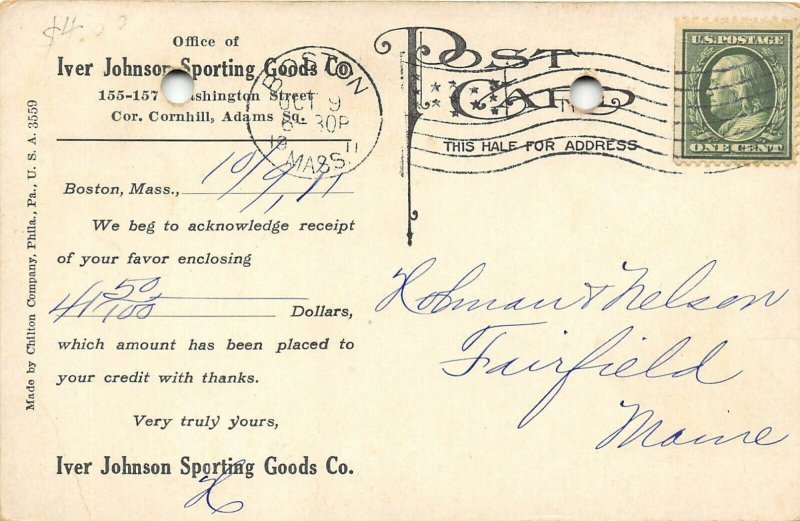 $4.00
Office of
Iver Johnson Sporting Goods Co.
155-157 Washington Street
Cor. Cornhill, Adams Sq.
BOSTON
OCT 9
6 30P
19 11
MASS.
POST
CARD
THIS HALF FOR ADDRESS
U.S. POSTAGE
ONE CENT
Boston, Mass., 10/9/11
We beg to acknowledge receipt
of your favor enclosing
41 50/100 Dollars,
which amount has been placed to
your credit with thanks.
Very truly yours,
Iver Johnson Sporting Goods Co.
H
Holman & Nelson
Fairfield
Maine
Made by Chilton Company, Phila., Pa., U. S. A. 3559